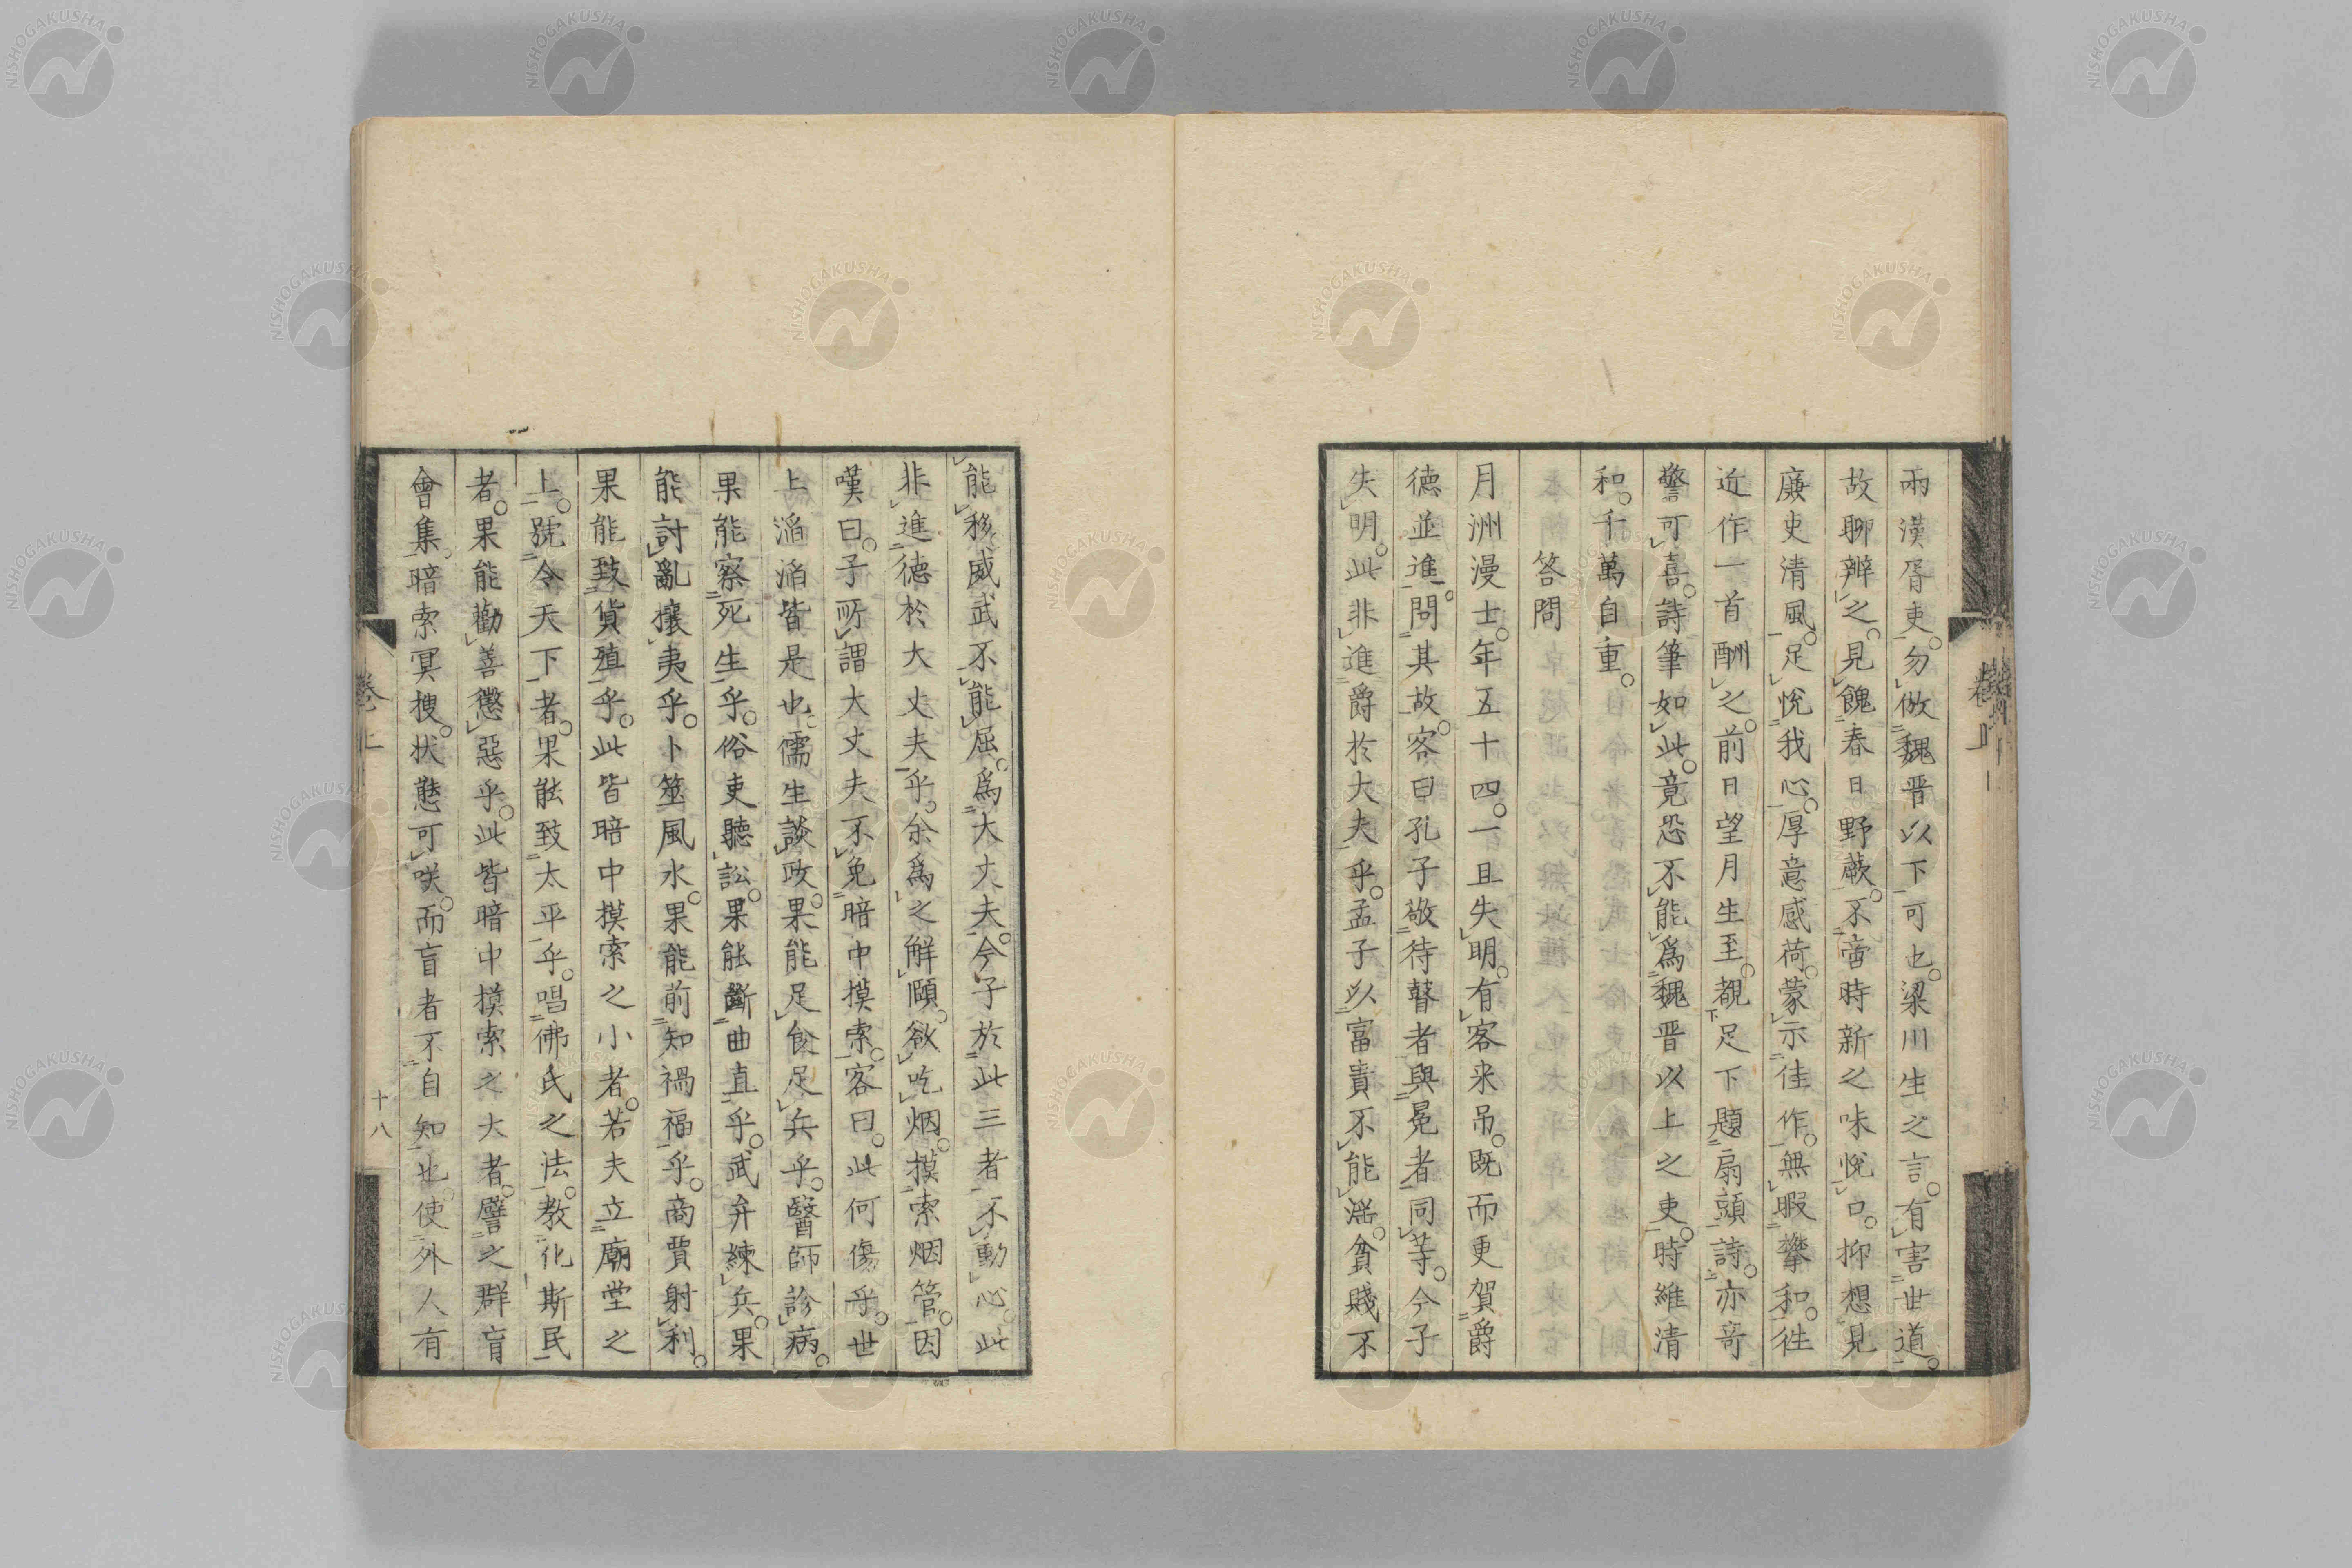 兩漢胥吏。勿倣魏晋以下可也。梁川生之言。有害世道。
故聊辯之。見餽春日野蕨。不啻時新之味悅口。抑想見
廉吏清風。足悅我心。厚意感荷。蒙示佳作。無暇攀和。徃
近作一首酬之。前日望月生至。覩足下題扇頭詩。亦奇
警可喜。詩筆如此。竟恐不能爲魏晋以上之吏。時維清
和。千萬自重。
答問
月洲漫士。年五十四。一旦失明。有客来吊。既而更賀爵
德並進。問其故。客曰孔子敬待瞽者與冕者同等。今子
失明。此非進爵於大夫乎。孟子以富貴不能滛。貧賤不
能移威武不能屈。爲大丈夫。今子於此三者不動心。此
非進德於大丈夫乎。余爲之解頤。欲吃烟。摸索烟管。因
嘆曰。子所謂大丈夫不免暗中摸索。客曰。此何傷乎。世
上滔滔皆是也。儒生談政。果能足食足兵乎。醫師診病。
果能察死生乎。俗吏聽訟。果能斷曲直乎。武弁練兵。果
能討亂攘夷乎。卜筮風水。果能前知禍福乎。商賈射利。
果能致貨殖乎。此皆暗中摸索之小者。若夫立廟堂之
上。號令天下者。果能致太平乎。唱佛氏之法。教化斯民
者。果能勸善懲惡乎。此皆暗中摸索之大者。譬之群盲
會集。暗索冥搜。状態可咲。而盲者不自知也。使外人有
卷上
十八
NISHOGAKUSHA